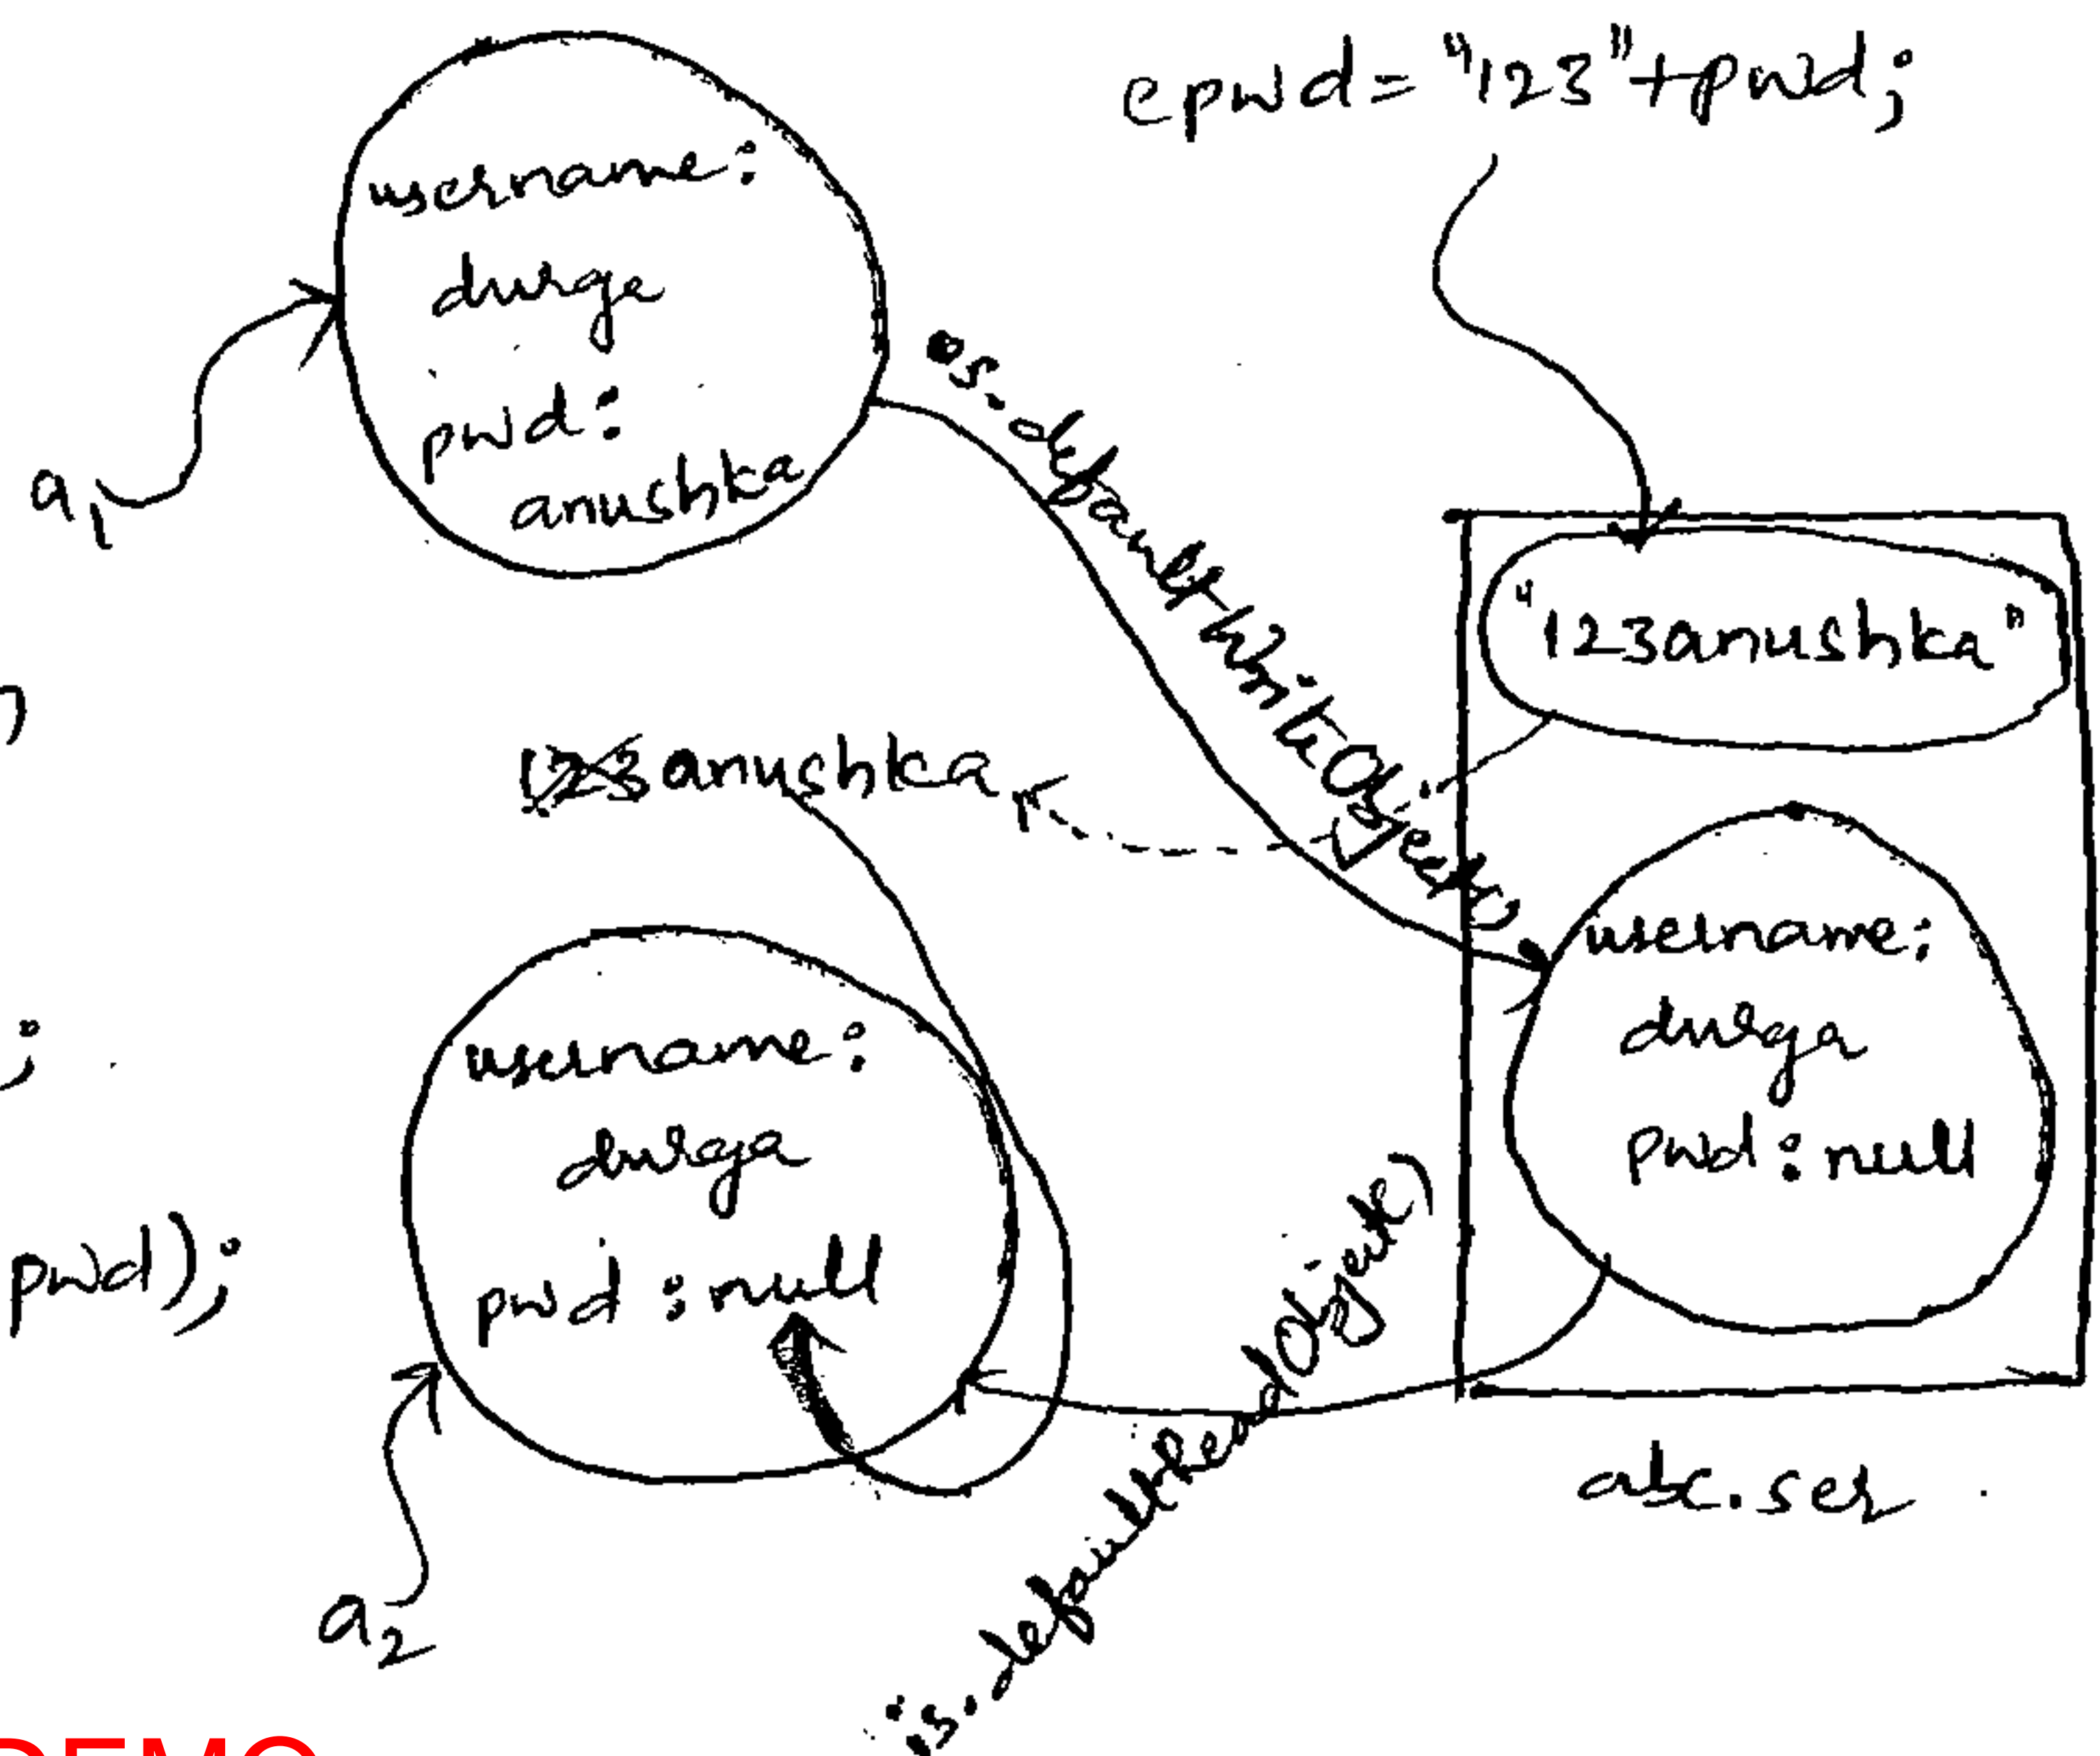 epwd= "123"+pwd;
username:
durga
pwd:
anushka
a1
os.defaultWriteObject()
"123anushka"
)
123anushka
username:
durga
pwd:null
;
username:
durga
pwd:null
pwd);
is.defaultReadObject()
abc.ser
a2
DEMO